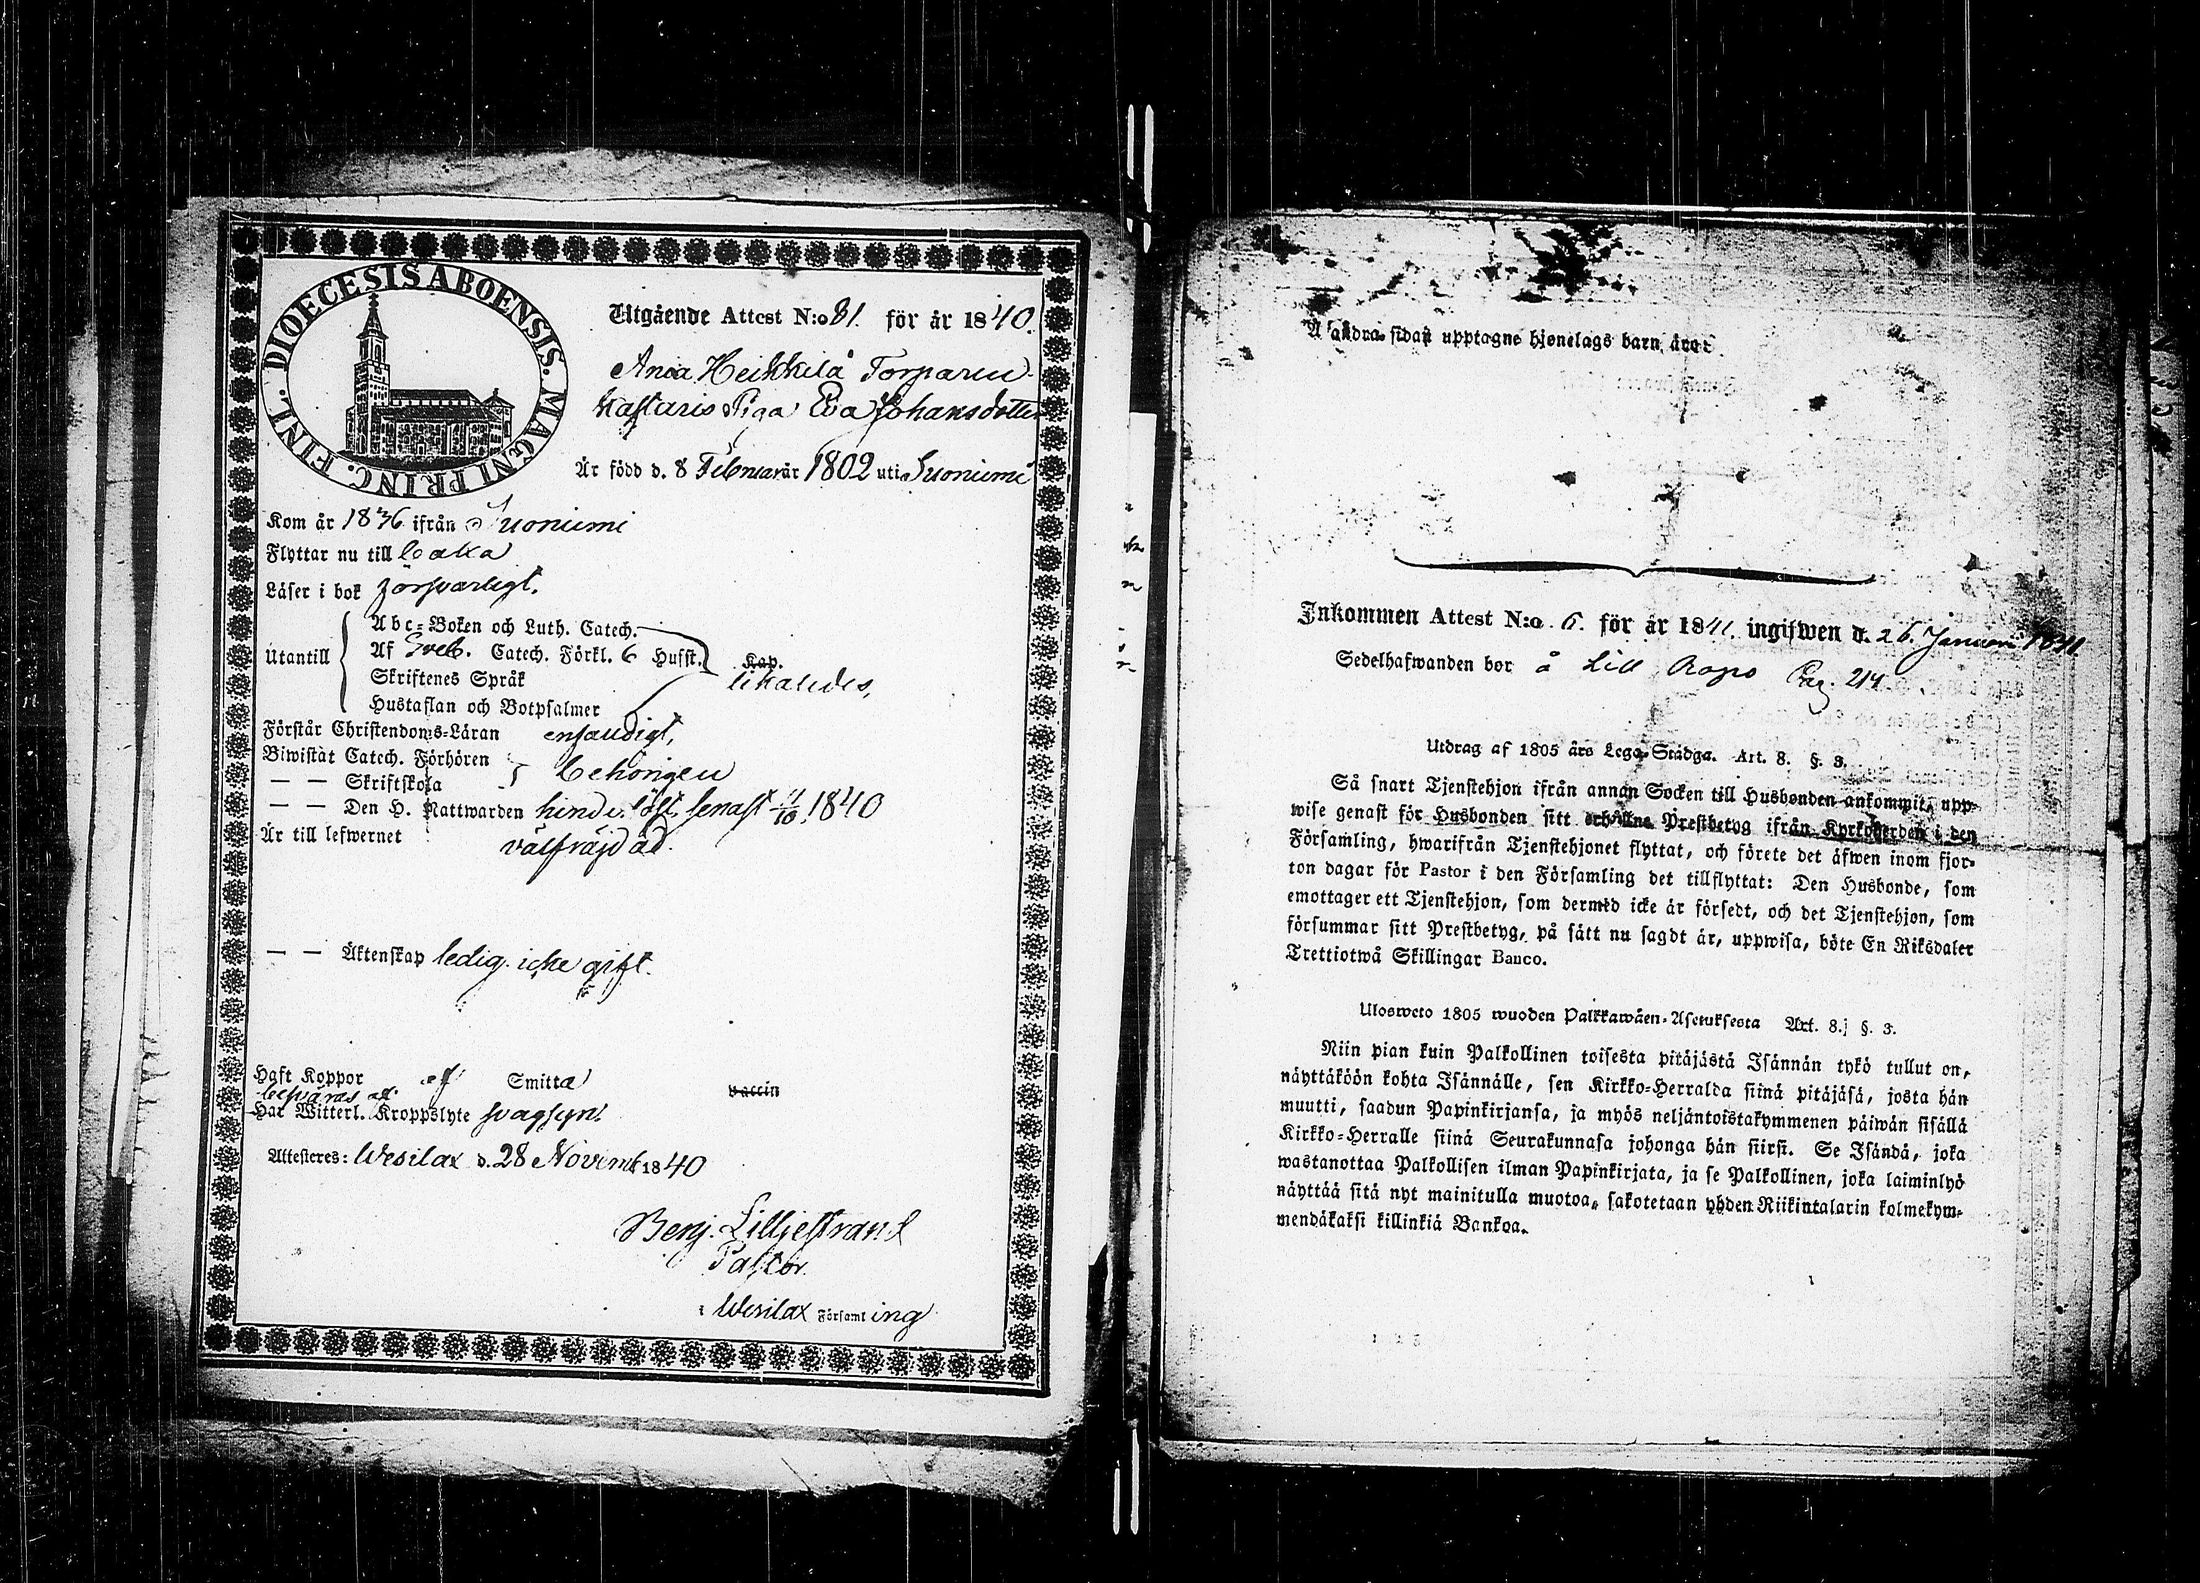 DIOECESIS ABOENSIS. MAGNI PRINC. FINL.
Utgående Attest N:o 81. för år 1840.
Heikkilä Torparen
Kastaris Piga Eva Johansdotter
Är född d. 8 Februar år 1802 uti Suoniemi
Kom år 1836 ifrån Suoniemi
Flyttar nu till
Läser i bok försvarligt.
Utantill
Abc-Boken och Luth. Catech.
Af Sveb. Catech. Förkl. 6 Husst. Kap.
Skriftenes Språk likaledes,
Hustaflan och Botpsalmer
Förstår Christendoms-Läran enfaldigt,
Biwistat Catech. Förhören
— — Skriftskola behörigen
— — Den H. Nattwarden senast 11/10 1840
Är till lefwernet välfräjdad.
— — Äktenskap ledig icke gift.
Haft Koppor ej Smitta vaccin
besväras af
Har Witterl. Kroppslyte svagsyn.
Attesteres: Wesilax d. 28 Novemb 1840
Benj. Lilljestrand
Pastor.
i Wesilax Församling
Å andra sidan upptagne hjonelags barn äro:
Inkommen Attest N:o 6. för år 1841. ingifwen d. 26. Januari 1841
Sedelhafwanden bor å Lill Pag. 214
Utdrag af 1805 års Lego-Stadga. Art. 8. §. 3.
Så snart Tjenstehjon ifrån annan Socken till Husbonden ankommit, upp-
wise genast för Husbonden sitt erhållne Prestbetyg ifrån Kyrkoherden i den
Församling, hwarifrån Tjenstehjonet flyttat, och förete det äfwen inom fjor-
ton dagar för Pastor i den Församling det tillflyttat: Den Husbonde, som
emottager ett Tjenstehjon, som dermed icke är försedt, och det Tjenstehjon, som
försummar sitt Prestbetyg, på sätt nu sagdt är, uppwisa, böte En Riksdaler
Trettiotwå Skillingar Banco.
Ulosweto 1805 wuoden Palkkawäen-Asetuksesta Art. 8. §. 3.
Niin pian kuin Palkollinen toisesta pitäjästä Isännän tykö tullut on,
näyttäköön kohta Isännälle, sen Kirkko-Herralda siinä pitäjäsä, josta hän
muutti, saadun Papinkirjansa, ja myös neljäntoistakymmenen päiwän sisällä
Kirkko-Herralle siinä Seurakunnasa johonga hän siirsi. Se Isändä, joka
wastanottaa Palkollisen ilman Papinkirjata, ja se Palkollinen, joka laiminlyö
näyttää sitä nyt mainitulla muotoa, sakotetaan yhden Riikintalarin kolmekym-
mendäkaksi killinkiä Bankoa.